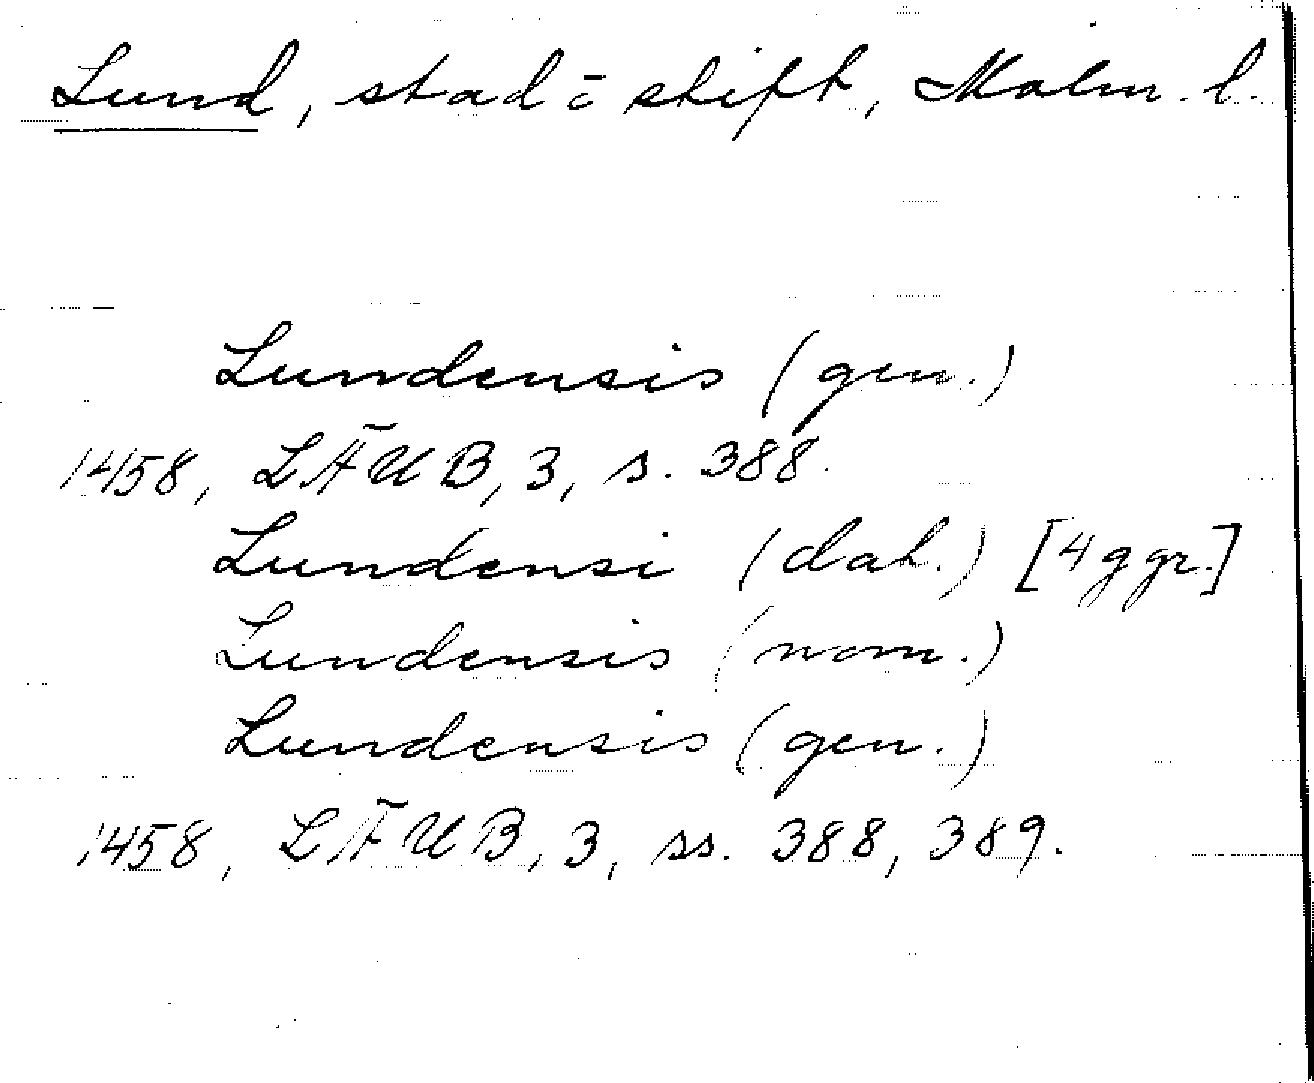 Lund, stad o stift, Malm. l.
Lundensis (gen.)
1458, LÄUB, 3, s. 388.
Lundensi (dat.) [4 ggr.]
Lundensis (nom.)
Lundensis (gen.)
1458, LÄUB, 3, ss. 388, 389.